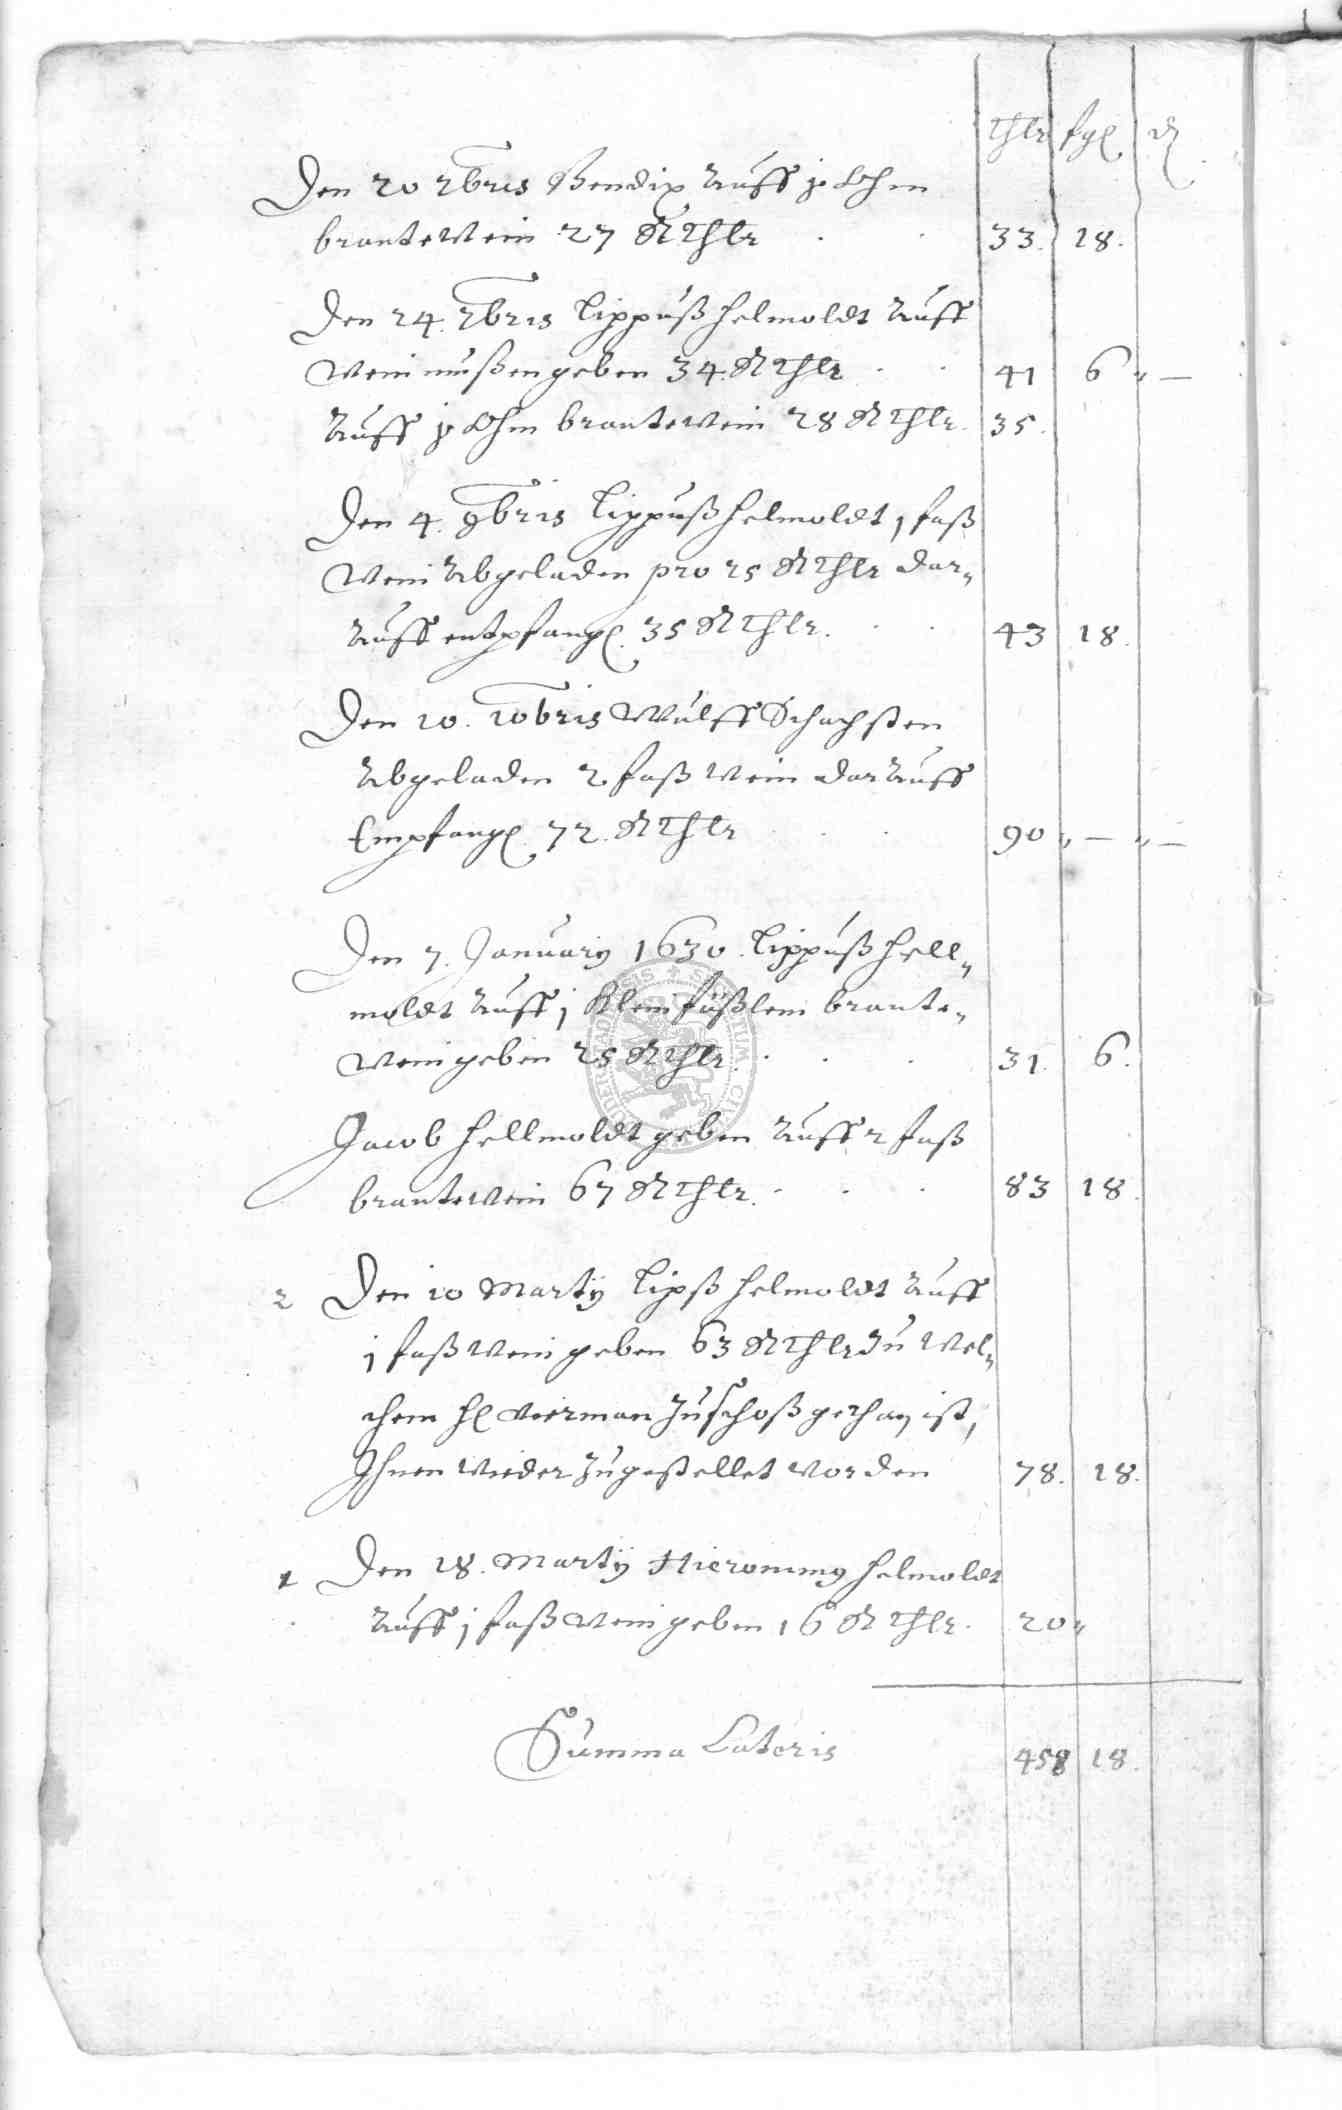 Thlr sgl d
Den 20 7bris Bendix Auff j Ohm
brantewein 27 R Thlr 33. 18.
Den 24. 7bris Lippuß Helmoldt Auff
Wein mußen geben 34. R Thlr 41 6 „ —
Auff j Ohm brantewein 28 R Thlr. 35.
Den 4. 9bris Lippuß Helmoldt 1 faß
Wein Abgeladen pro 25 R Thlr dar„
Auff entpfang. 35 R Thlr. 43 18.
Den 10. 10bris Wulff Schachsten
Abgeladen 2 faß Wein dar Auff
Empfang. 72. R Thlr 90 „ — „ —
Den 7. January 1630. Lippuß Hell„
moldt Auff j Klein fäßlein brante„
Wein geben 25 R Thlr. 31. 6.
Jacob Hellmoldt geben Auff 2 faß
brantewein 67 R Thlr. 83 18.
2 Den 10 Martij Lipß Helmoldt Auff
j faß Wein geben 63 R Thlr Zu Wel„
chem H. Vierman Zuschoß gethan ist,
Ihnen Wieder Zugestellet worden 78. 18.
1 Den 18. Martij Hieronimy Helmoldt
Auff j faß Wein geben 16 R Thlr. 20 „
Summa Lateris 458 18.